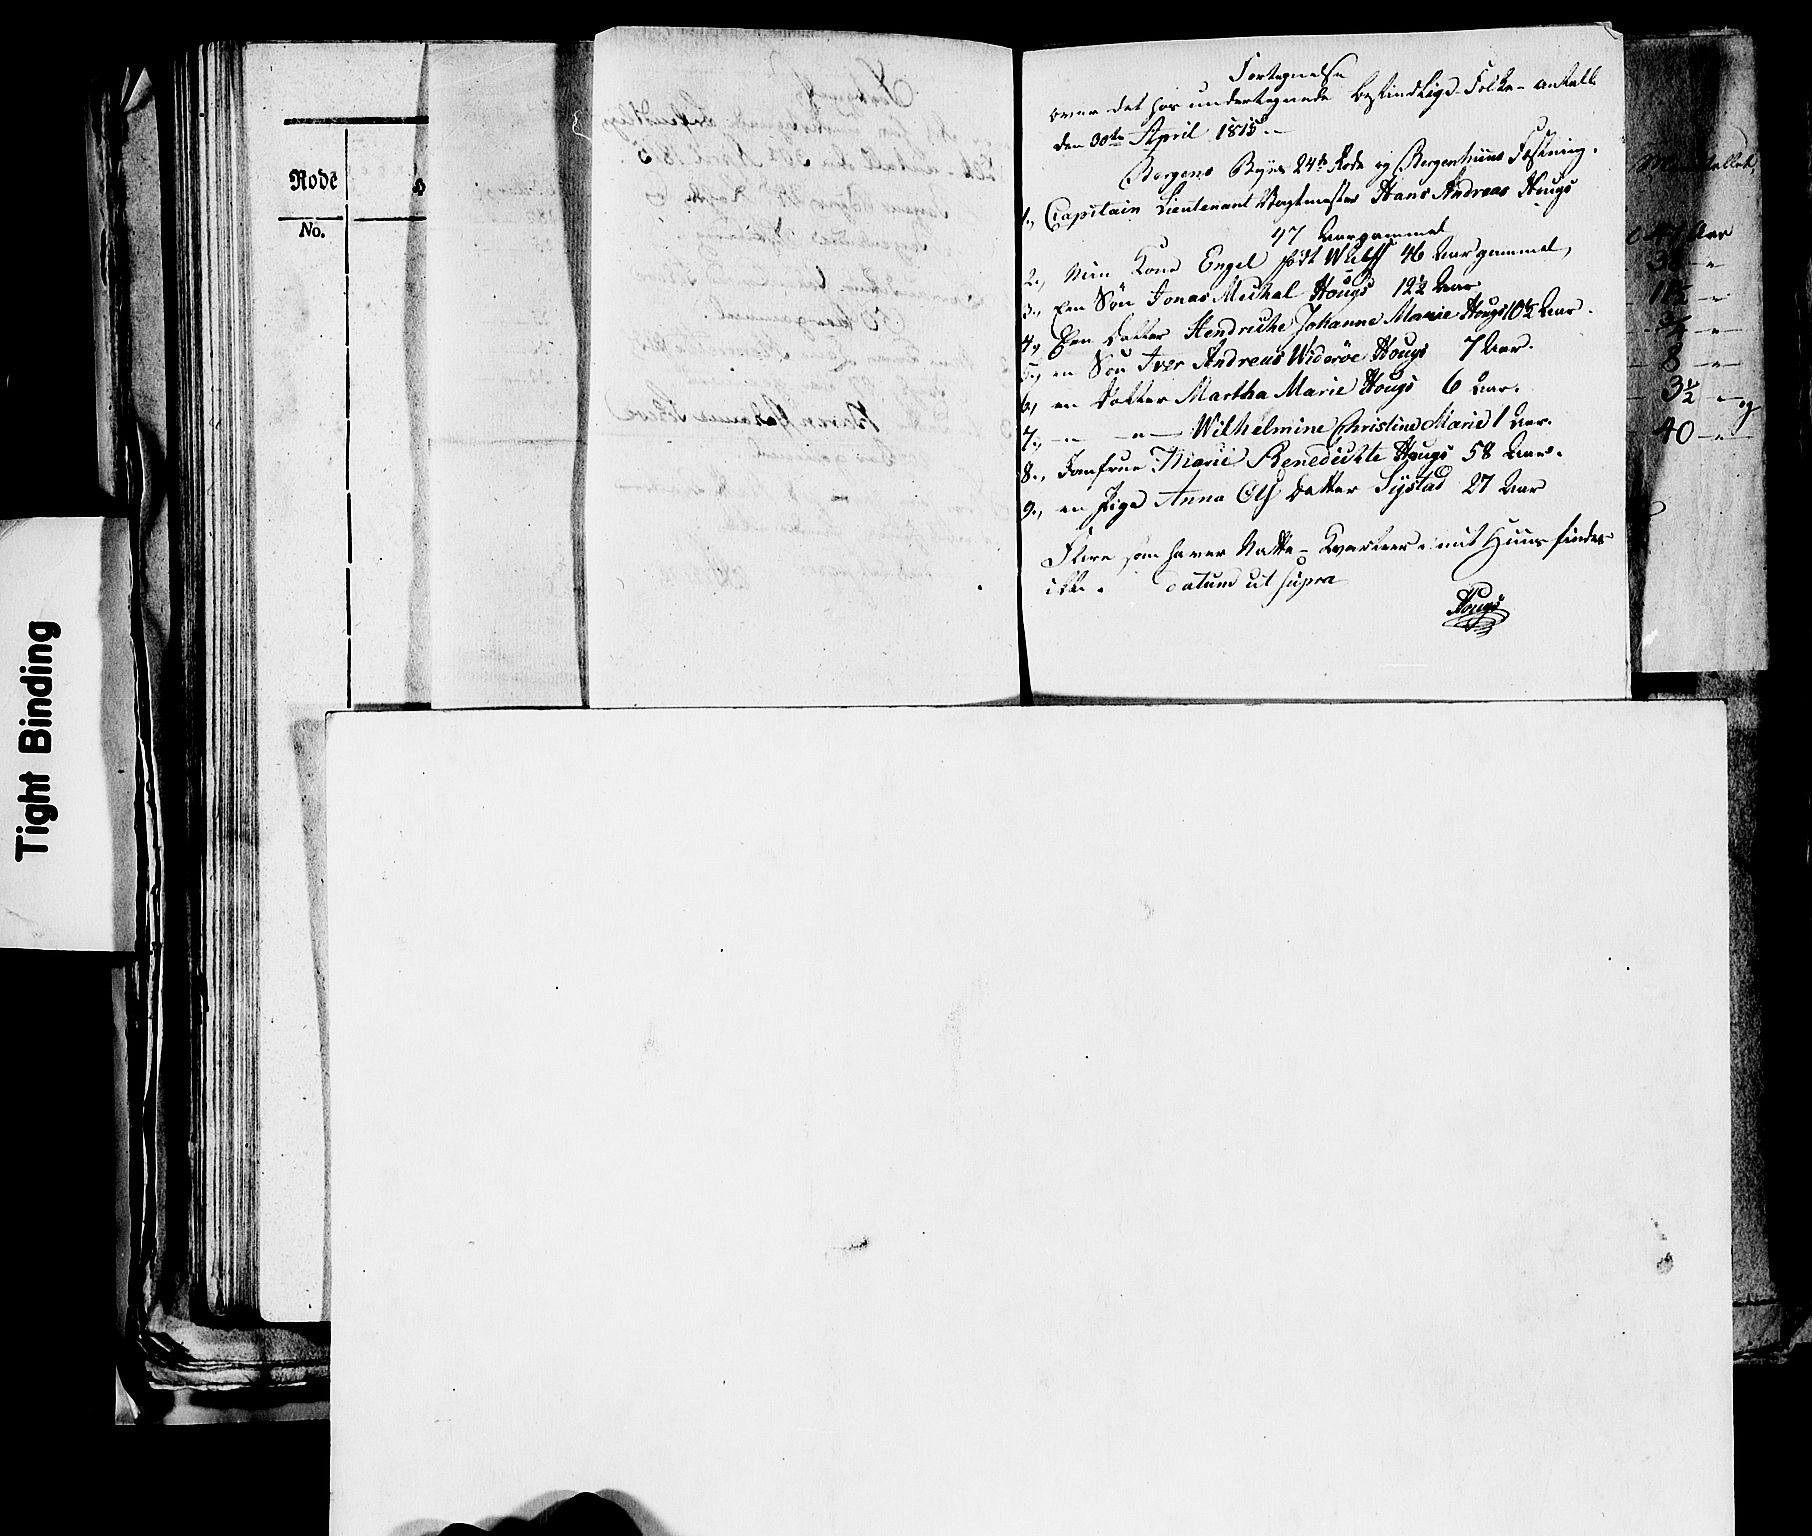 Tight Binding
Rode
No.
Fortegnelse
over det hos undertegnede befindtlige Folke-antall
den 30te April 1815.
Bergens Byes 24de Rode og Bergenhuus Fæstning.
1., Capitain Lieutenant Vagtmester Hans Andreas Hougs
47 Aar gammel
2., Min Kone Engel født Wulff 46 Aar gammel,
3., Een Søn Jonas Michal Hougs 12½ Aar
4., Een Datter Hendriche Johanne Marie Hougs 10½ Aar.
5., en Søn Iver Andreas Widerøe Hougs 7 Aar.
6., en Datter Martha Marie Hougs 6 Aar.
7., -"- -"- Wilhelmine Christine Marie 1 Aar.
8., Jomfrue Marie Benedicte Hougs 58 Aar.
9., en Pige Anna Ols Datter Systad 27 Aar
Flere som haver Natte-Kvarteer i mit Huus findes
ikke. Datum ut supra
Hougs
11½ -"-
8 -"-
3½ -"- og
40 -"-